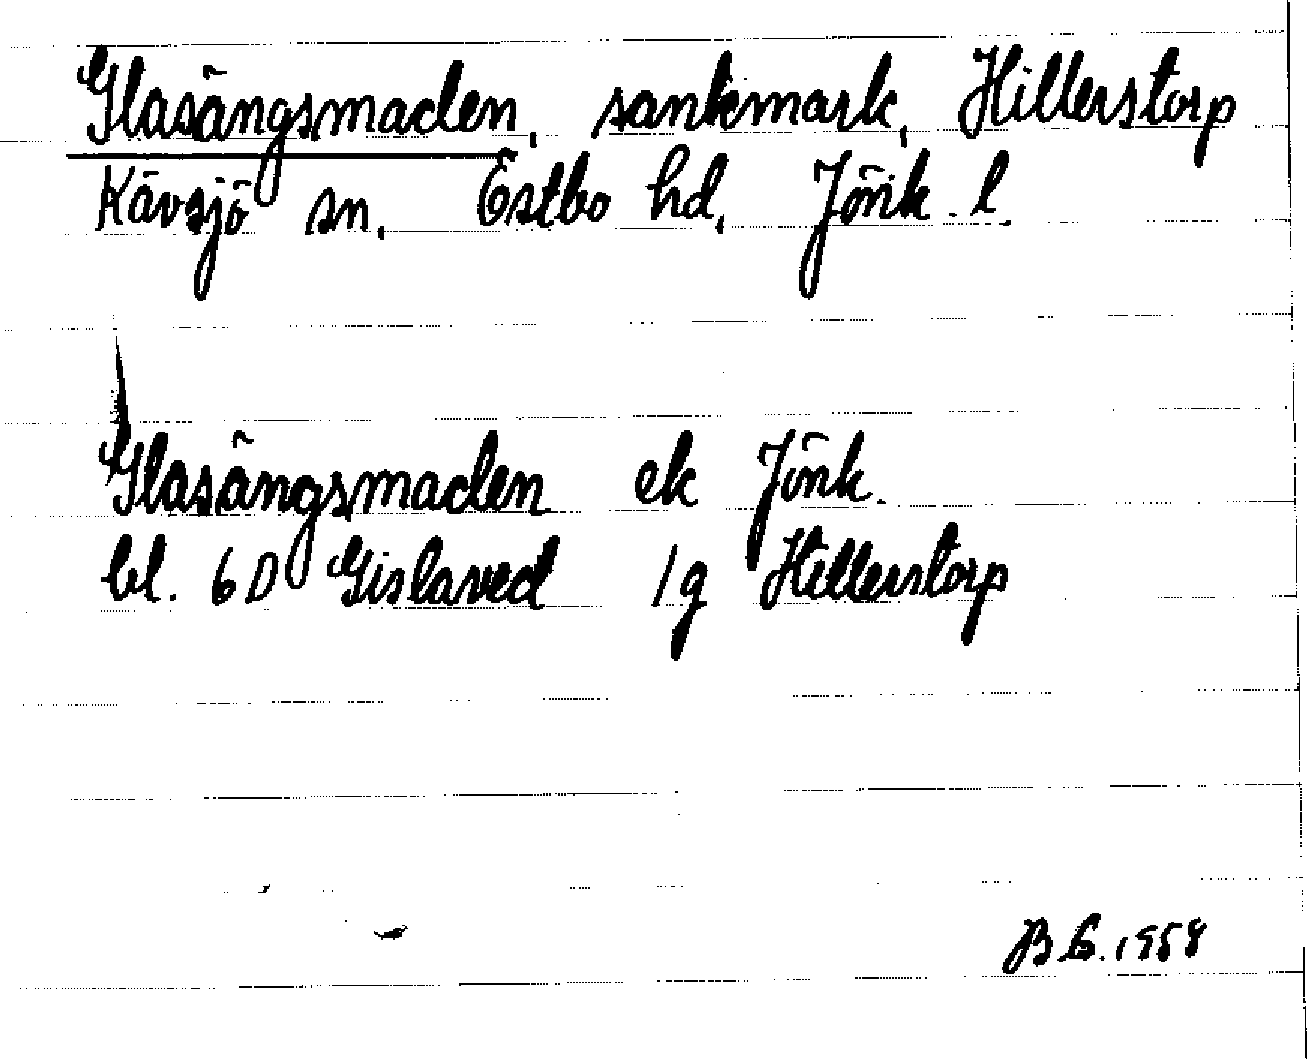 Glasängsmaden, sankmark, Hillerstorp
Kävsjö sn, Östbo hd, Jönk. l.
Glasängsmaden ek Jönk.
bl. 6 D Gislaved 1g Hillerstorp
B.G. 1958